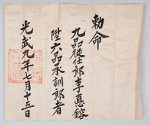 勅命
九品從仕郎李㥁鎔
陞六品承訓郎者
光武九年七月十五日